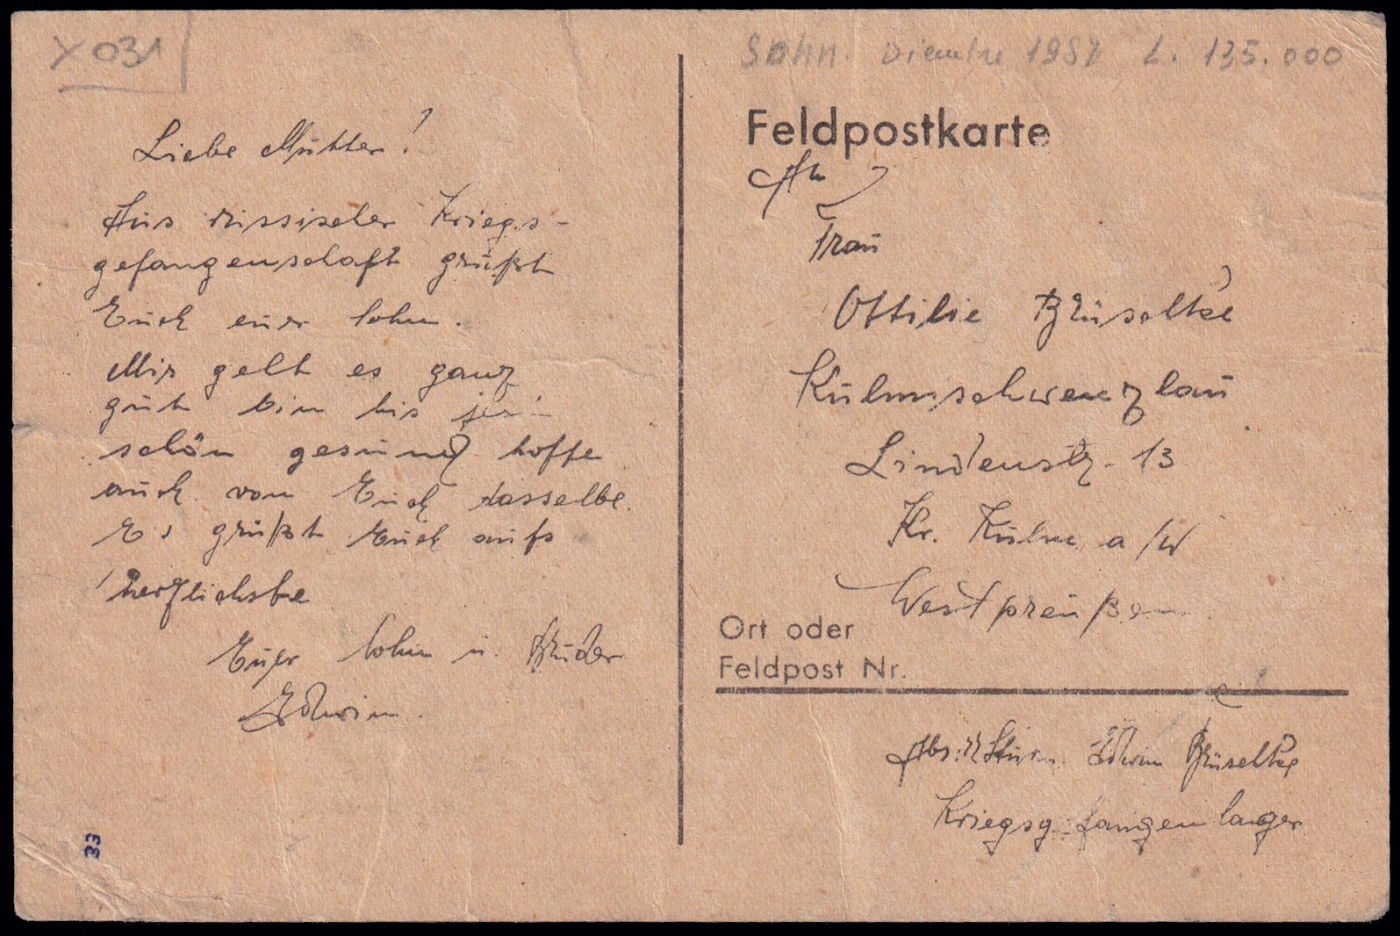 X 031
Liebe Mutter!
Aus russischer Kriegs-
gefangenschaft grüßt
Euch euer Sohn.
Mir geht es ganz
gut bin bis jetzt
schön gesund hoffe
auch von Euch dasselbe.
Es grüßt Euch aufs
herzlichste
Euer Sohn u. Bruder
Edwin.
33
1987 L. 135.000
Feldpostkarte
An
Frau
Ottilie Brüseltke
Kulmschwenzlau
Lindenstr. 13
Kr. Kulm a/W
Westpreußen
Ort oder
Feldpost Nr.
Abs: Edwin Brüseltke
Kriegsgefangenlager